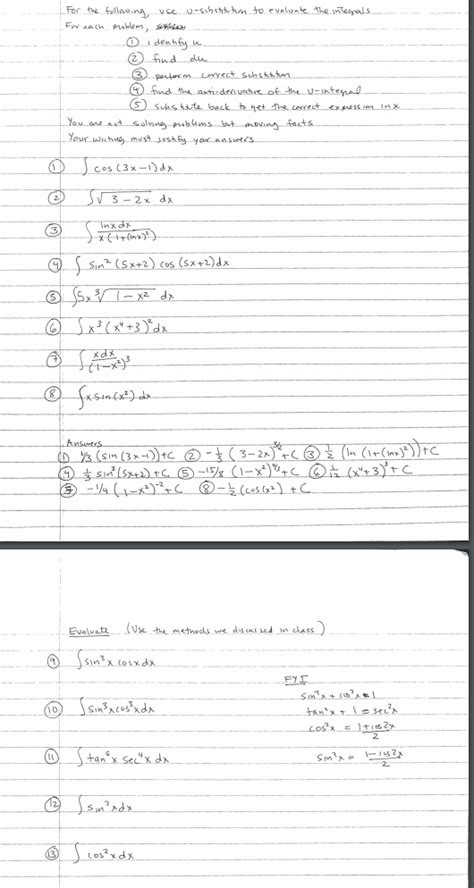 For the following, use u-substitution to evaluate the integrals
For each problem,
① identify u
② find du
③ perform correct substitution
④ find the anti-derivative of the u-integral
⑤ substitute back to get the correct expression in x
You are not solving problems but moving facts
Your writing must justify your answers
① ∫ cos (3x-1) dx
② ∫ √(3-2x) dx
③ ∫ lnx dx / x(1+(lnx)²)
④ ∫ sin² (5x+2) cos (5x+2) dx
⑤ ∫ 5x ∛(1-x²) dx
⑥ ∫ x³ (x⁴+3)² dx
⑦ ∫ xdx / (1-x²)³
⑧ ∫ x sin (x²) dx
Answers
① 1/3 (sin (3x-1)) + C ② -1/3 (3-2x)^(3/2) + C ③ 1/2 (ln (1+(lnx)²)) + C
④ 1/15 sin³ (5x+2) + C ⑤ -15/8 (1-x²)^(4/3) + C ⑥ 1/12 (x⁴+3)³ + C
⑦ -1/4 (1-x²)⁻² + C ⑧ -1/2 (cos(x²) + C
Evaluate (Use the methods we discussed in class)
⑨ ∫ sin³x cosx dx
FYI
sin²x + cos²x = 1
⑩ ∫ sin³x cos³x dx
tan²x + 1 = sec²x
cos²x = 1+cos2x / 2
⑪ ∫ tan⁶x sec⁴x dx
sin²x = 1-cos2x / 2
⑫ ∫ sin²x dx
⑬ ∫ cos²x dx